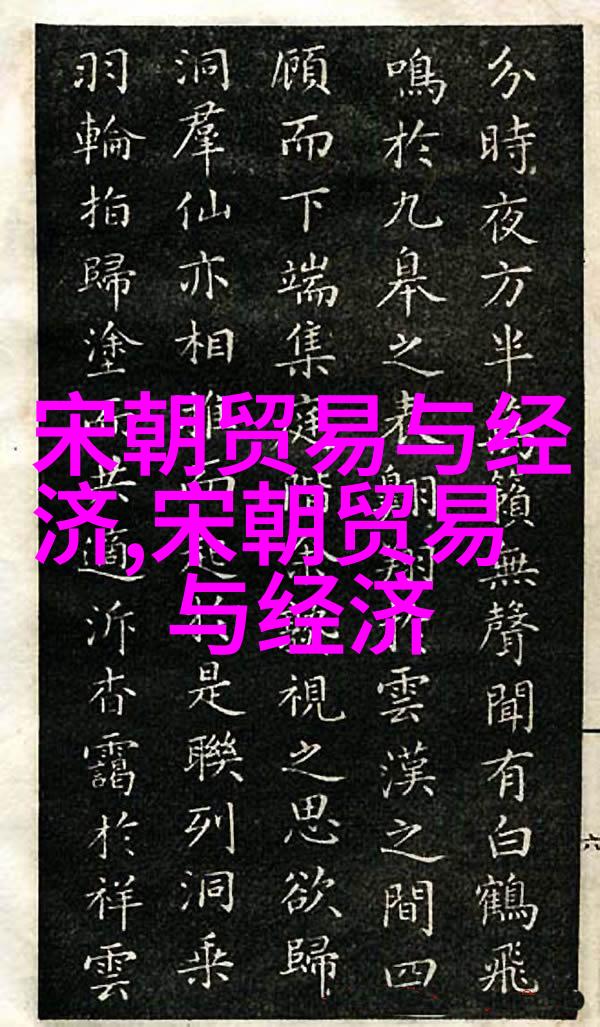 宋朝贸易与经
济,宋朝贸易
与经济
分時夜方半萬籟無聲聞有白鶴飛
鳴於九皋之表翱翔於雲漢之間四
顧而下端集庭階視之思欲歸
洞羣仙亦相是聯列洞乘
羽輪拍歸塗而共適泝杳靄於祥雲
六